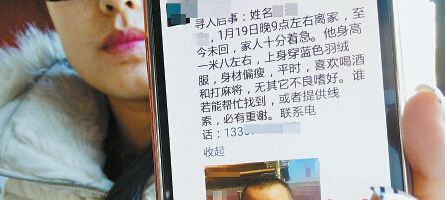 寻人启事：姓名
，1月19日晚9点左右离家，至
今未回，家人十分着急。他身高
一米八左右，上身穿蓝色羽绒
服，身材偏瘦，平时，喜欢喝酒
和打麻将，无其它不良嗜好。谁
若能帮忙找到，或者提供线
索，必有重谢。联系电
话：133
收起